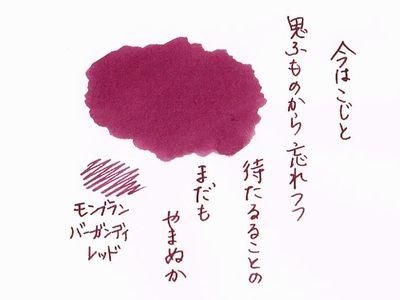 今はこじと
思ふものから忘れつつ
待たるることの
まだも
やまぬか
モンブラン
バーガンディ
レッド